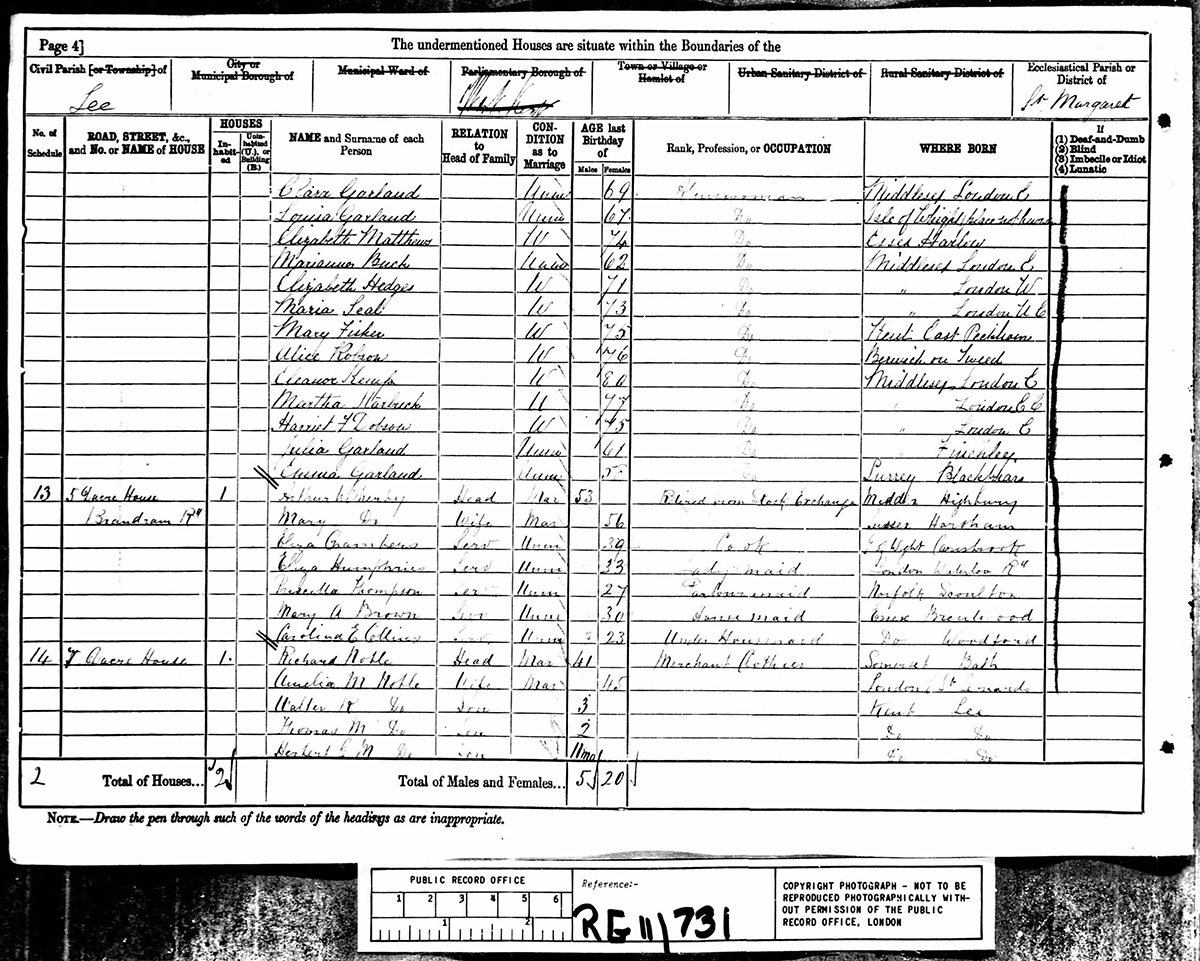 Page 4]
The undermentioned Houses are situate within the Boundaries of the
Civil Parish [or Township] of
City or Municipal Borough of
Municipal Ward of
Parliamentary Borough of
Town or Village or Hamlet of
Urban Sanitary District of
Rural Sanitary District of
Ecclesiastical Parish or District of
Lee
St Margaret
No. of Schedule
ROAD, STREET, &c., and No. or NAME of HOUSE
HOUSES
Inhabited
Uninhabited (U.), or Building (B.)
NAME and Surname of each Person
RELATION to Head of Family
CONDITION as to Marriage
AGE last Birthday of
Males
Females
Rank, Profession, or OCCUPATION
WHERE BORN
If
(1) Deaf-and-Dumb
(2) Blind
(3) Imbecile or Idiot
(4) Lunatic
Clara Garland Unm 69 Middlesex London E
Louisa Garland Unm 67 Do Isle of Wight place not known
Elizabeth Matthews W 74 Do Essex Harlow
Marianne Buck Unm 62 Do Middlesex London E
Elizabeth Hedges W 71 Do " London W
Maria Seal W 73 Do " London W C
Mary Fisher W 75 Do Kent East Peckham
Alice Robson W 76 Do Berwick on Tweed
Eleanor Kemp W 80 Do Middlesex London E
Martha Warbrick W 77 Do " London E C
Harriet F Dobson W 75 Do " London E
Julia Garland Unm 61 Do " Finchley
Emma Garland Unm Do Surrey Blackfriars
13 5 Dacre House 1 Head Mar 53 Retired from Stock Exchange Middx Highbury
Brandram Rd Mary Do Wife Mar 56 Sussex Horsham
Eliza Chambers Serv Unm 39 Cook I of Wight Carisbrook
Eliza Humphries Serv Unm 33 Lady's maid London Waterloo Rd
Priscilla Thompson Ser Unm 27 Parlour maid Norfolk Scoulton
Mary A Brown Serv Unm 30 House maid Essex Brentwood
Caroline E Collins Serv Unm 23 Under Housemaid Do Woodford
14 7 Dacre House 1 Richard Noble Head Mar 41 Merchant Clothier Somerset Bath
Amelia M Noble Wife Mar 45 London St Lenards
Walter R Do Son 3 Kent Lee
Thomas M Do Son 2 Do Do
Herbert G M Do Son 11mo Do Do
2 Total of Houses... 2
Total of Males and Females... 5 20
NOTE.—Draw the pen through such of the words of the headings as are inappropriate.
PUBLIC RECORD OFFICE
1 2 3 4 5 6
1 2
Reference:-
RG 11/731
COPYRIGHT PHOTOGRAPH - NOT TO BE
REPRODUCED PHOTOGRAPHICALLY WITH-
OUT PERMISSION OF THE PUBLIC
RECORD OFFICE, LONDON